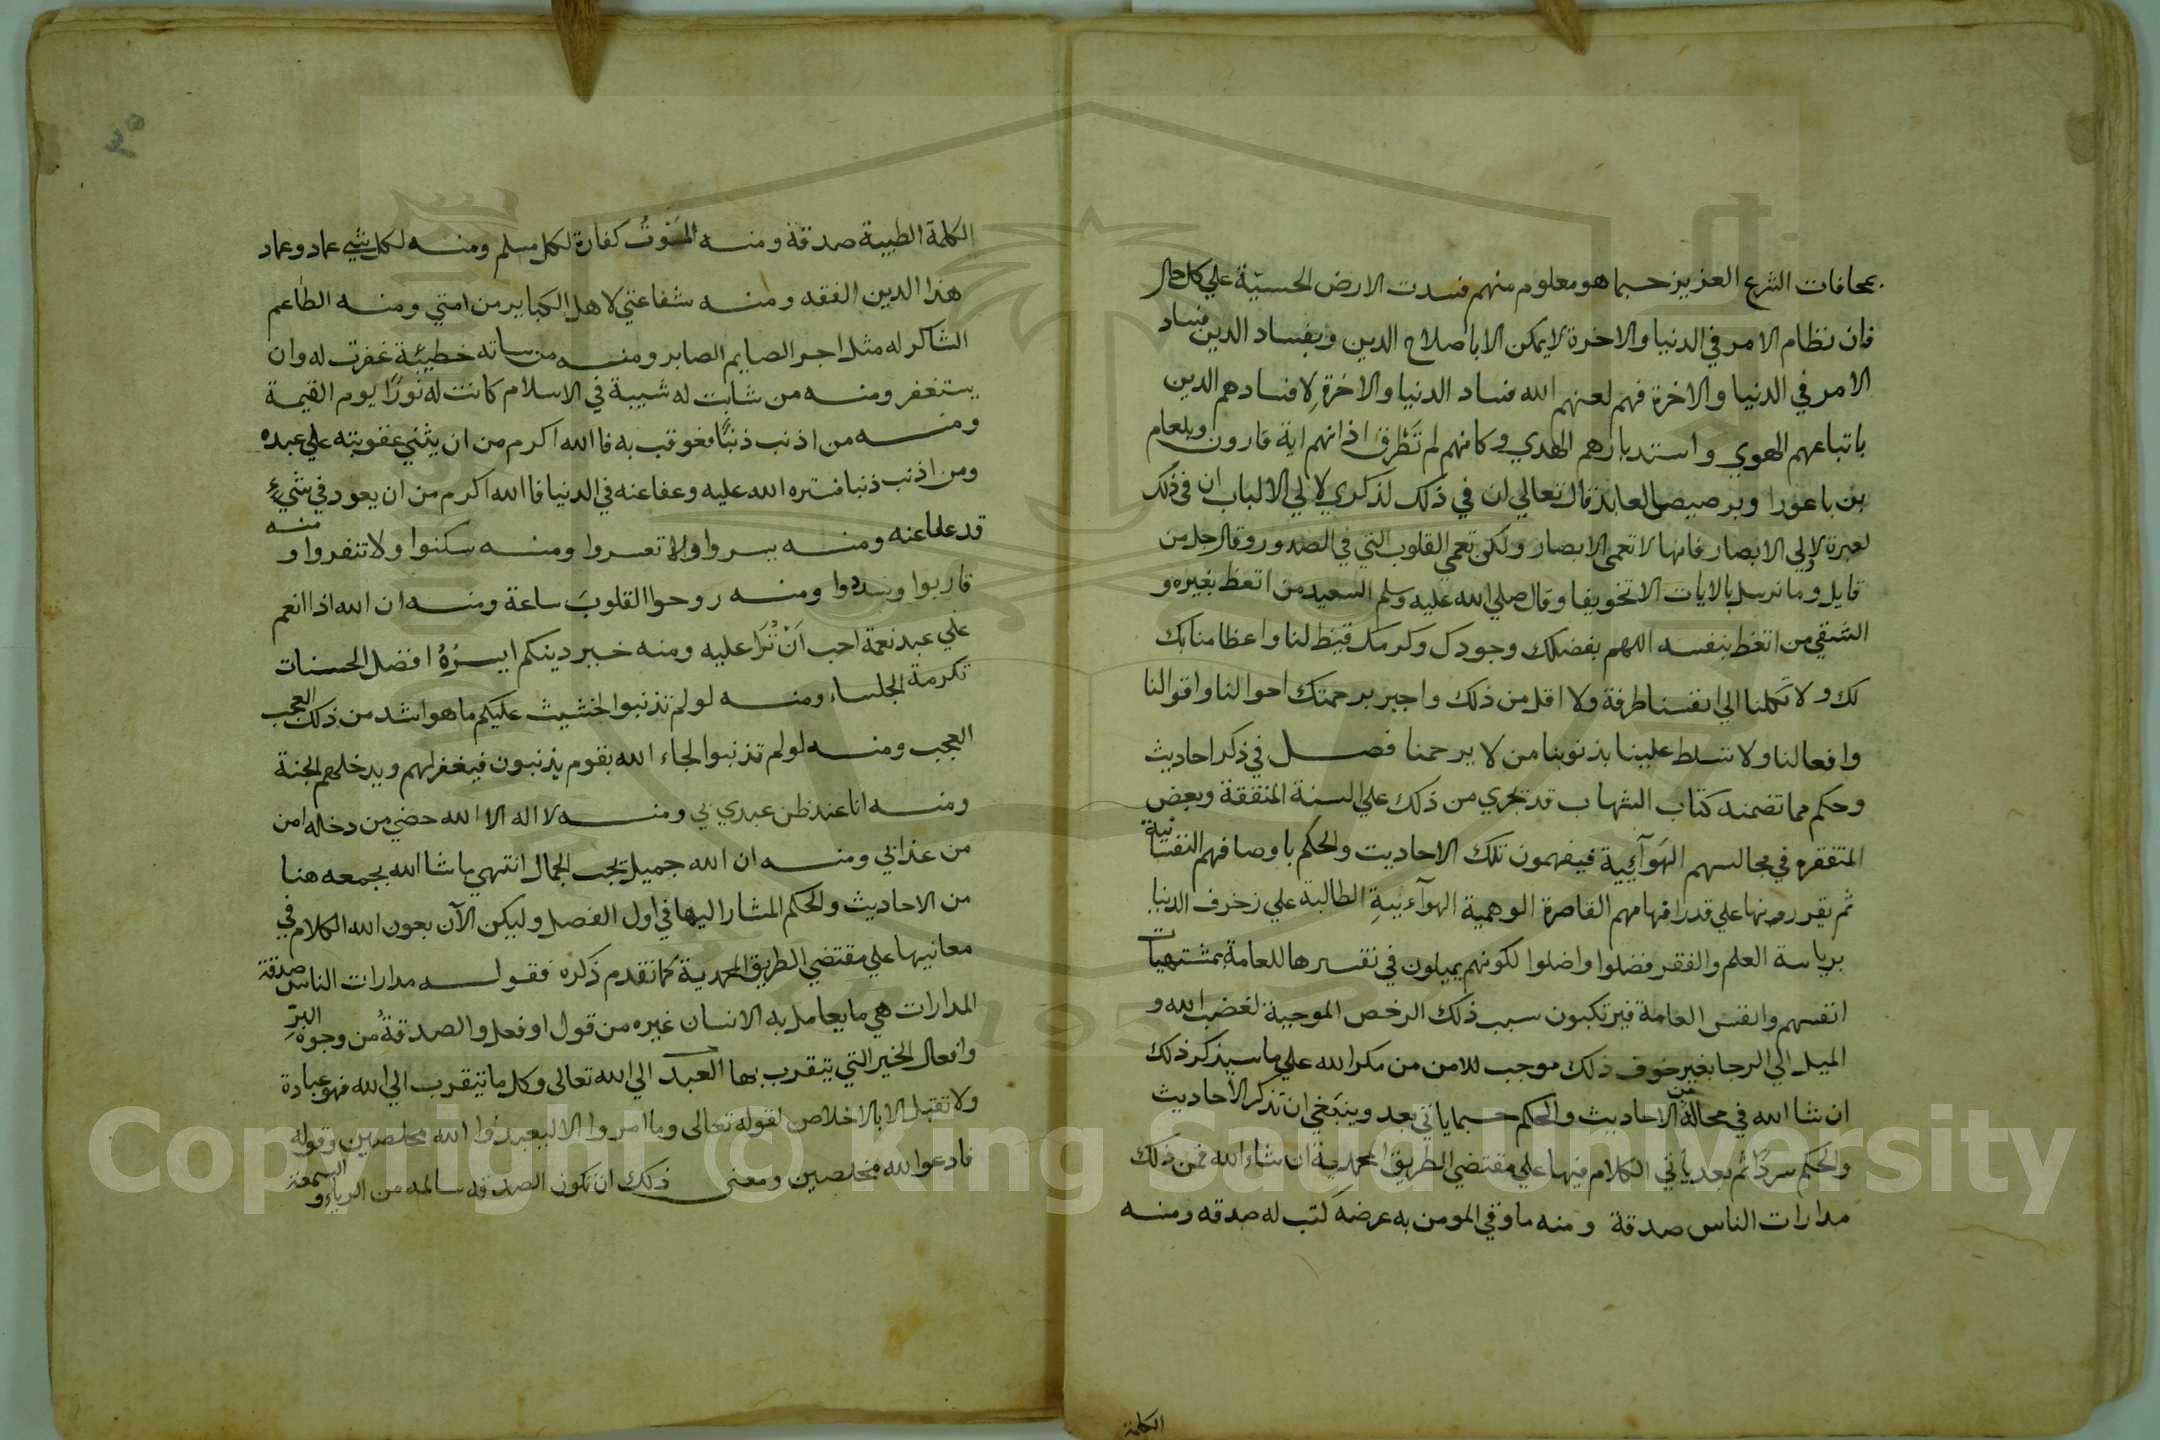 بمحافات الشرع العزيز حسبما هو معلوم منهم فسدت الارض الحسيّة علي كل حال
فان نظام الامر في الدنيا والاخرة لا يمكن الا باصلاح الدين وبفساد الدين فساد
الامر في الدنيا والاخرة فهم لعنهم الله فساد الدنيا والاخرةِ لافسادهم الدين
باتباعهم الهوي واستدبارهم الهدي وكانهم لم تَطْرق اذانهم اية قارون وبلعام
بن باعورا وبرصيص العابد قال تعالي ان في ذلك لذكري لاولي الالباب ان في ذلك
لعبرة لاولي الابصار فانها لا تعمى الابصار ولكن تعمي القلوب التي في الصدور وقال جل من
قايل وما نرسل بالايات الا تخويفا وقال صلي الله عليه وسلم السعيد من اتعظ بغيره و
الشقي من اتعظ بنفسه اللهم بفضلك وجودك وكرمك قيّظ لنا واعظا منا بك
لك ولا تكلنا الي انفسنا طرفة ولا اقل من ذلك واجبر برحمتك احوالنا واقوالنا
وافعالنا ولا تسلط علينا بذنوبنا من لا يرحمنا فصل في ذكر احاديث
وحكم مما تضمنه كتاب الشهاب قد تجري من ذلك علي السنة المتفقة وبعض
المتفقره في مجالسهم الهَوآئِية فيفهمون تلك الاحاديث والحكم باوصافهم النفسانية
ثم يقررونها علي قدر افهامهم القاصرة الوهمية الهوآءيةِ الطالبة علي زخرف الدنيا
برياسة العلم والفقر فضلوا واضلوا لكونهم يميلون في تفسيرها للعامة بمشتهيات
انفسهم وانفس العامة فيرتكبون سبب ذلك الرخص الموجبة لغضب الله و
الميل الي الرجا بغير خوف ذلك موجب للامن من مكر الله علي ما سيذكر ذلك
ان شا الله في محاله من الاحاديث والحكم حسبما ياتي بعد وينبغي ان تذكر الاحاديث
والحكم سردًا ثم بعد ياتي الكلام فيها علي مقتضي الطريق المحمدية ان شاء الله فمن ذلك
مدارات الناس صدقة ومنه ما وقي المومن به عرضه كتب له صدقه ومنه
الكلمة
الكلمة الطيبة صدقة ومنه المَوْتُ كفارة لكل مسلم ومنه لكل شي عماد وعماد
هذا الدين الفقه ومنه شفاعتي لاهل الكباير من امتي ومنه الطاعم
الشاكر له مثل اجر الصايم الصابر ومنه من ساته خطيئة غفرت له وان
يستغفر ومنه من شابت له شيبة في الاسلام كانت له نُورًا يوم القيمة
ومنه من اذنب ذنبًا فعوقب به فا الله اكرم من ان يثني عقوبته علي عبده
ومن اذنب ذنبا فستره الله عليه وعفا عنه في الدنيا فا الله اكرم من ان يعود في شيءٍ
قد عفا عنه ومنه يسروا ولا تعسروا ومنه سكنوا ولا تنفروا ومنه
قاربوا وسددوا ومنه روحوا القلوبَ ساعة ومنه ان الله اذا انعم
علي عبد نعمة احب اَنْ تُرَا عليه ومنه خير دينكم ايسَرُهُ افضل الحسنات
تكرمة الجلساء ومنه لو لم تذنبوا لخشيت عليكم ما هو اشد من ذلك العجب
العجب ومنه لو لم تذنبوا لجاء الله بقوم يذنبون فيغفر لهم ويدخلهم الجنة
ومنه انا عند ظن عبدي بي ومنه لا اله الا الله حضي من دخله امن
من عذابي ومنه ان الله جميل يحب الجمال انتهي ما شا الله بجمعه هنا
من الاحاديث والحكم المشار اليها في اول الفصل وليكن الآن بعون الله الكلام في
معانيها علي مقتضي الطريق المحمدية كما تقدم ذكره فقوله مدارات الناس صدقة
المدارات هي ما يعامل به الانسان غيره من قول او فعل والصدقةُ من وجوهِ البرّ
وافعال الخير التي يتقرب بها العبد الي الله تعالى وكل ما تيقرب الي الله فهو عبادة
ولا تقبل الا بالاخلاص لقوله تعالى وما امروا الا ليعبدوا الله مخلصين وقوله
فادعوا لله مخلصين ومعنى ذلك ان تكون الصدقه سالمه من الرياء والسمعة